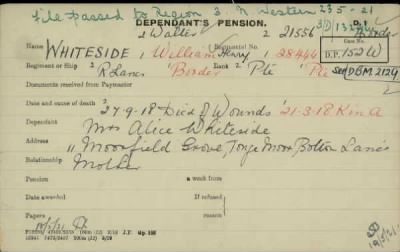 File passed to Region 3. N. Western 23 5 - 21
DEPENDANT'S PENSION. D.1
2 Walter 2 21556 Border
Name WHITESIDE 1 William Henry Regimental No. 1 28444 D.P. 152W
Regiment or Ship 2 R Lancs 1 Border Rank 2 Pte 1 Pte See DBM. 2129
Documents received from Paymaster
Date and cause of death 2 27-9-18 Died of Wounds 1 21-3-18 K in A
Dependant Mrs Alice Whiteside
Address 11 Moorfield Grove, Tonge Moor Bolton Lancs
Relationship Mother
Pension a week from
Date awarded If refused, reason
Papers